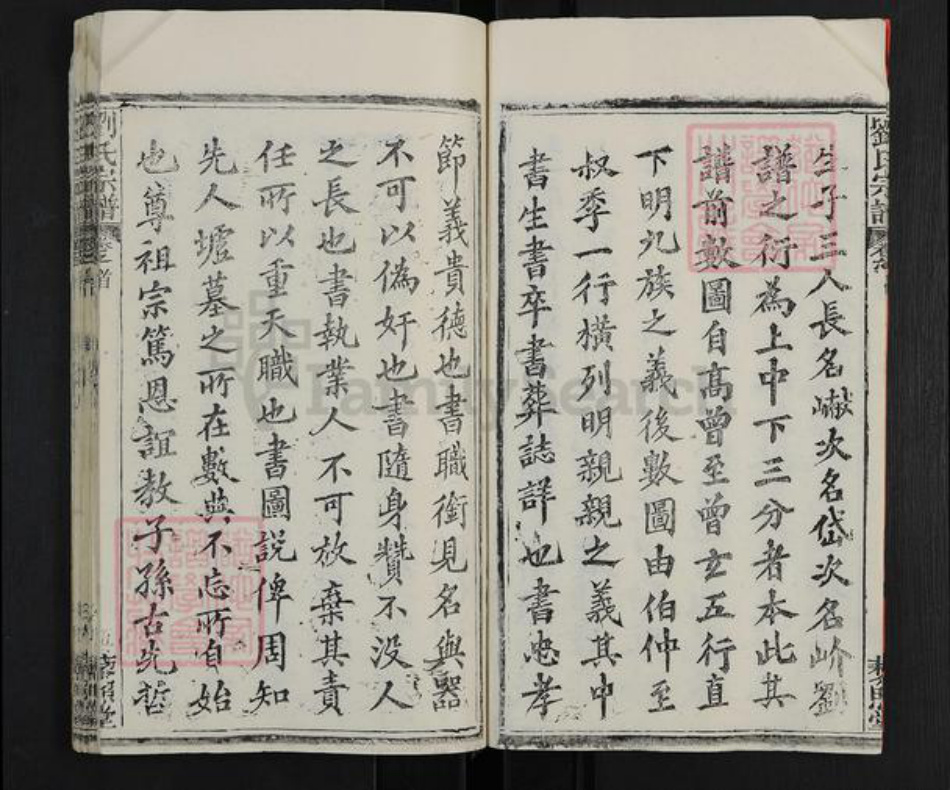 生子三人長名巘次名岱次名岕劉
譜之衍為上中下三分者本此其
譜前數圖自高曾至曾玄五行直
下明九族之義後數圖由伯仲至
叔季一行橫列明親親之義其中
書生書卒書葬誌詳也書忠孝
節義貴德也書職銜見名與器
不可以偽奸也書隨身贊不没人
之長也書執業人不可放棄其責
任所以重天職也書圖說俾周知
先人墟墓之所在數典不忘所自始
也尊祖宗篤恩誼教子孫古先哲
劉氏宗譜
氏宗譜 卷 首
FamilySearch